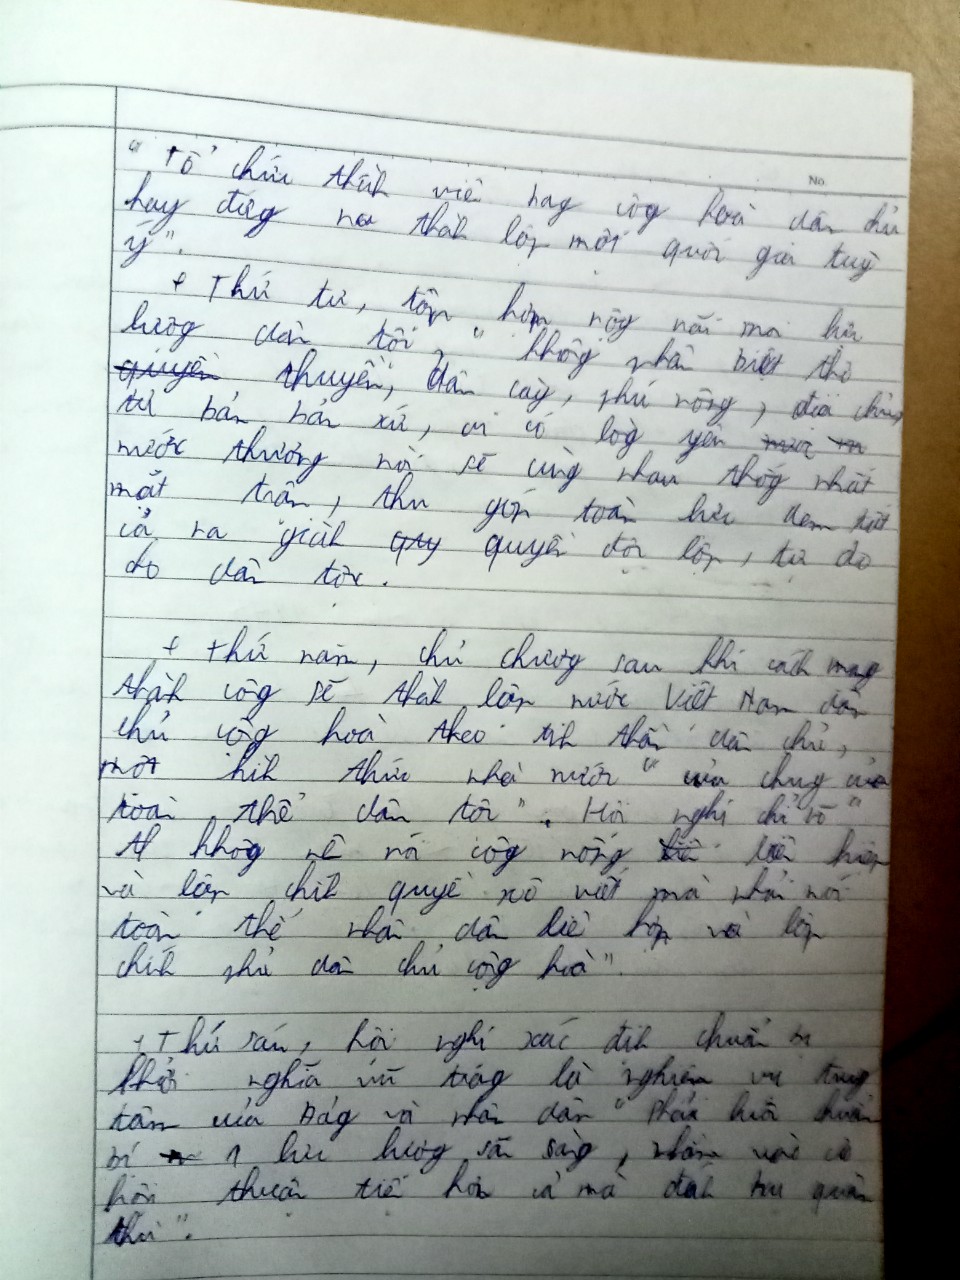 No.
"Tổ chức thàh viê hay cộg hoà dân chủ
hay đứg ra thàh lập một quốc gia tuỳ
ý".
+ Thứ tư, tập hợp rộg rãi mọi lực
lượg dân tộc, "không phân biệt thợ
thuyền, dân cày, phú nông, địa chủ,
tư bản bản xứ, ai có lòg yêu
nước thươg nòi sẽ cùng nhau thốg nhất
mặt trận, thu góp toàn lực đem tất
cả ra giàh quyền độc lập, tự do
do dân tộc.
+ Thứ năm, chủ chươg sau khi cách mạg
thàh công sẽ thàh lập nước Việt Nam dân
chủ cộg hoà theo tih thần dân chủ,
một hìh thức nhà nước "của chug của
toàn thể dân tộc". Hội nghị chỉ rõ "
khôg nê nói côg nông liên hiệp
và lập chíh quyề xô viết mà phải nói
toàn thể nhân dân liê hợp và lập
chíh phủ dân chủ cộg hoà".
+ Thứ sáu, hội nghị xác địh chuẩn bị
khởi nghĩa vũ trag là nghiệm vụ trug
tâm của Đảg và nhân dân "Phải luôn chuẩn
bị 1 lực lượg sẵn sàg, nhằm vào cơ
hội thuận tiệ hơn cả mà đáh lại quân
thù".